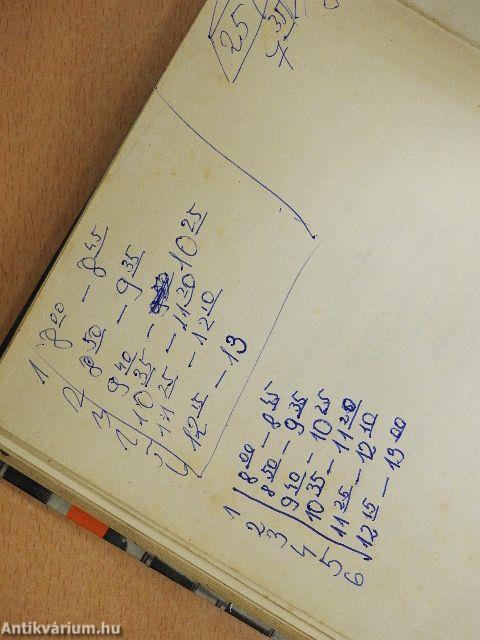 25
7 35
1 8 00 - 8 45
2 8 50 - 9 35
3 9 40 - 10 25
4 10 35 - 11 20
5 11 25 - 12 10
6 12 15 - 13
1 8 00 - 8 45
2 8 50 - 9 35
3 9 40 - 10 25
4 10 35 - 11 20
5 11 25 - 12 10
6 12 15 - 13 00
Antikvárium.hu